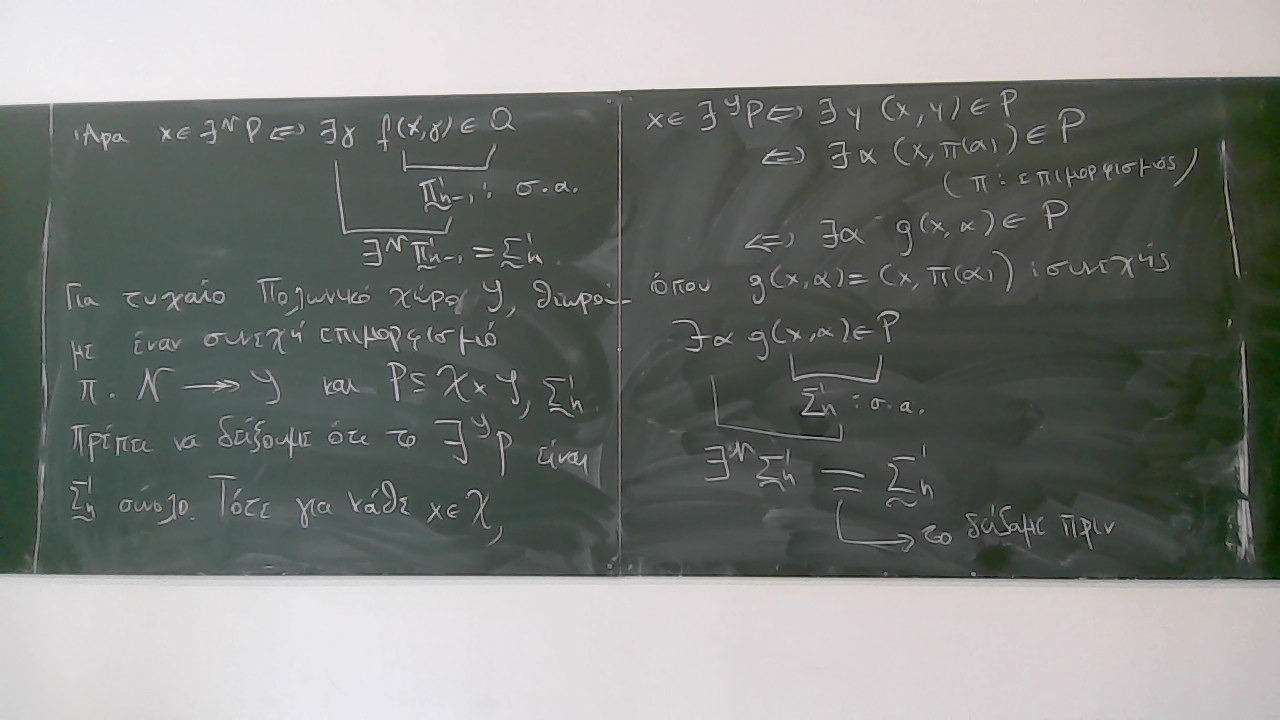 Άρα x ∈ ∃^𝒩 P ⇔ ∃γ f(x,γ) ∈ Q
Π̰¹ₙ₋₁ : σ.α.
∃^𝒩 Π̰¹ₙ₋₁ = Σ̰¹ₙ.
Για τυχαίο Πολωνικό χώρο 𝒴, θεωρού-
με έναν συνεχή επιμορφισμό
π : 𝒩 ↠ 𝒴 και P ⊆ 𝒳 × 𝒴, Σ̰¹ₙ.
Πρέπει να δείξουμε ότι το ∃^𝒴 P είναι
Σ̰¹ₙ σύνολο. Τότε για κάθε x ∈ 𝒳,
x ∈ ∃^𝒴 P ⇔ ∃y (x,y) ∈ P
⇔ ∃α (x, π(α)) ∈ P
(π : επιμορφισμός)
⇔ ∃α g(x,α) ∈ P
όπου g(x,α) = (x, π(α)) : συνεχής
∃α g(x,α) ∈ P
Σ̰¹ₙ : σ.α.
∃^𝒩 Σ̰¹ₙ = Σ̰¹ₙ
→ το δείξαμε πριν